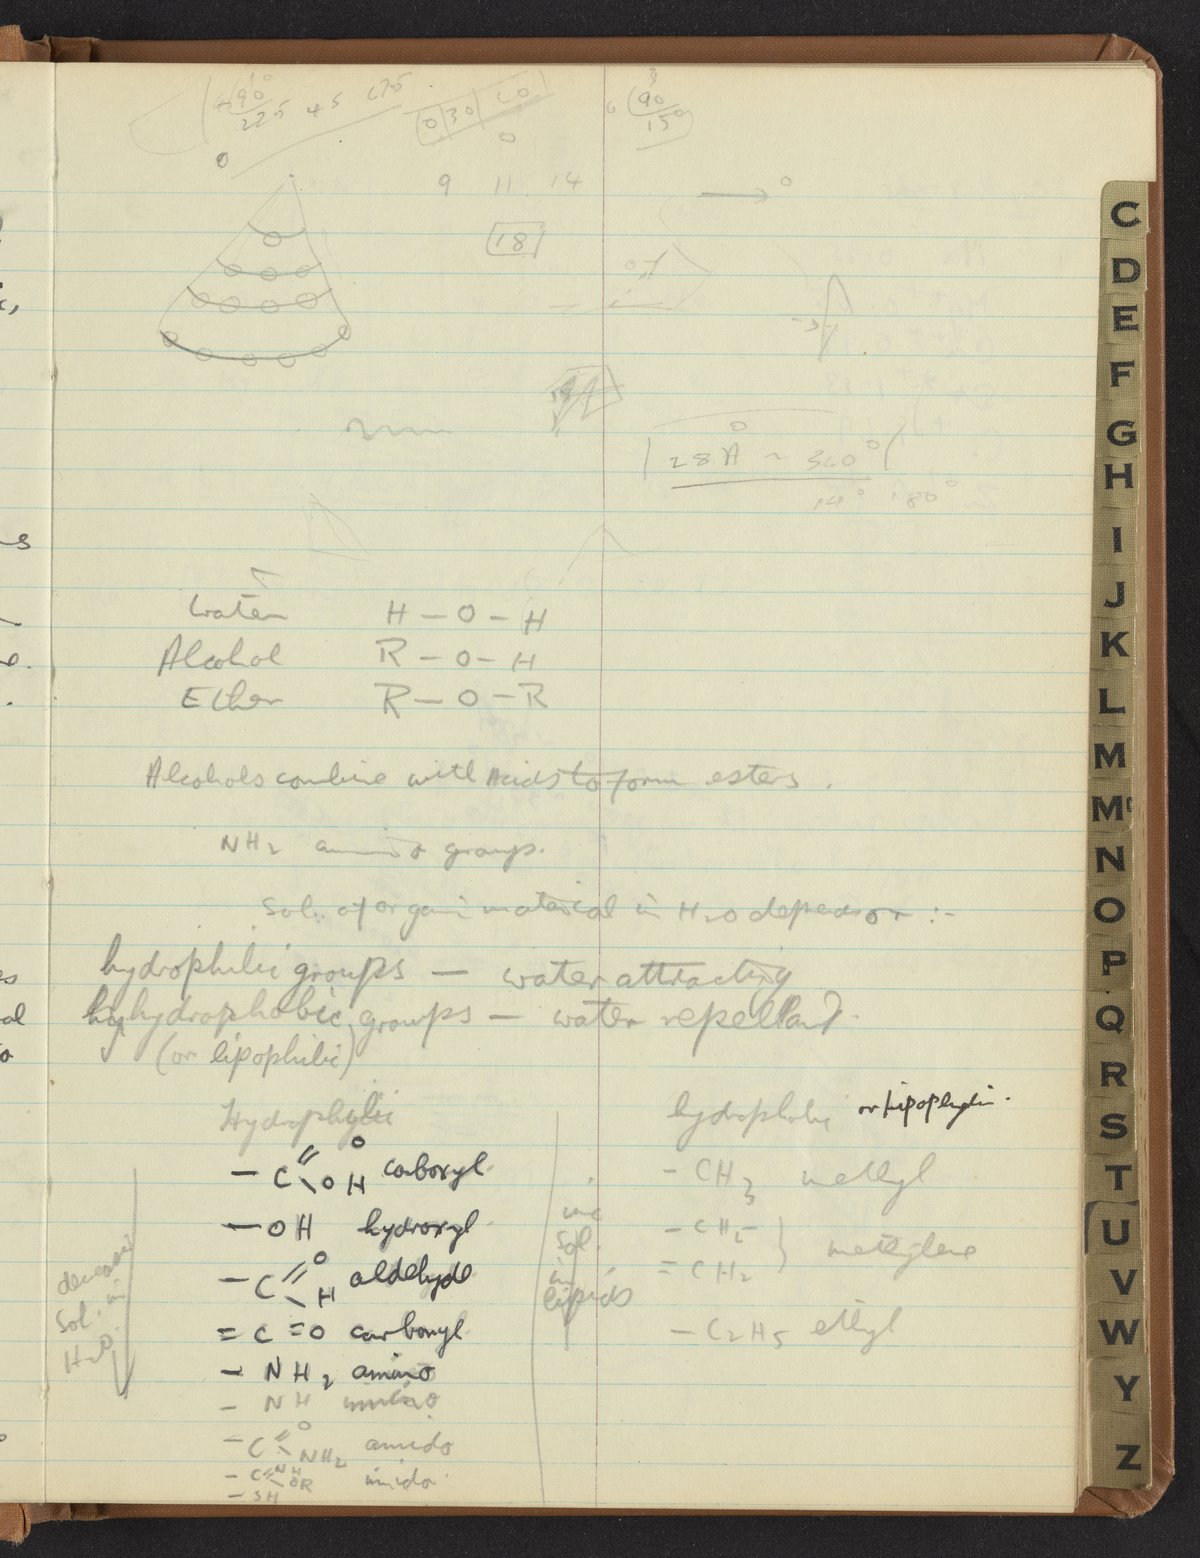 90
22.5 45
0 30
90
15°
9 11 14
18
28Å ~ 360°
14° 180°
Water H-O-H
Alcohol R-O-H
Ether R-O-R
Alcohols combine with Acids to form esters.
NH2 amino groups.
Sol. of organic material in H2O depends on :-
hydrophilic groups — water attracting
hydrophobic groups — water repellant.
(or lipophilic)
Hydrophylic
-C=O OH carboxyl.
-OH hydroxyl.
-C=O H aldehyde
=C=O carbonyl.
-NH2 amino
-NH imino
-C=O NH2 amido
-C=NH OR imido.
-SH
decreasing
Sol. in
H2O.
inc
Sol.
in
lipids
hydrophobic or lipophylic.
-CH3 methyl
-CH2-
=CH2 methylene
-C2H5 ethyl
C
D
E
F
G
H
I
J
K
L
M
Mc
N
O
P
Q
R
S
T
U
V
W
Y
Z